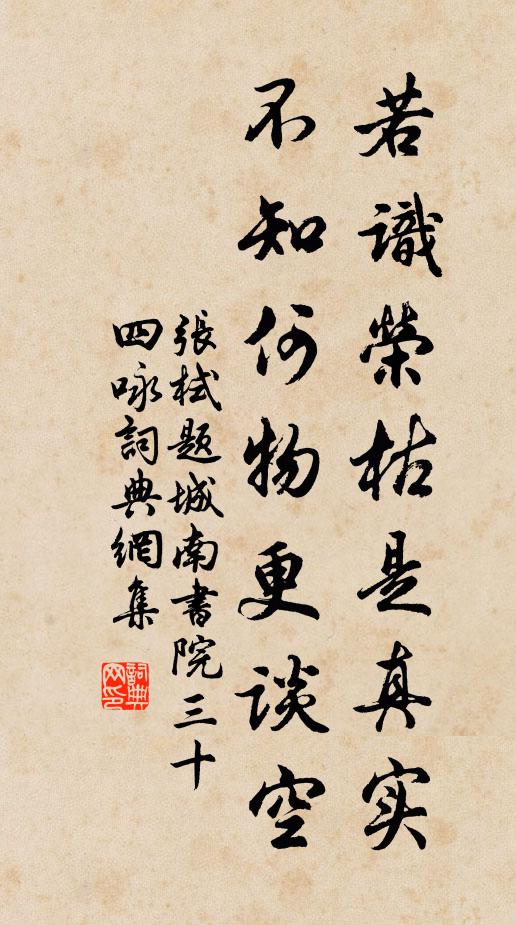 若識榮枯是真实
不知何物更談空
張栻题城南書院三十
四咏詞典網集
詞典网印